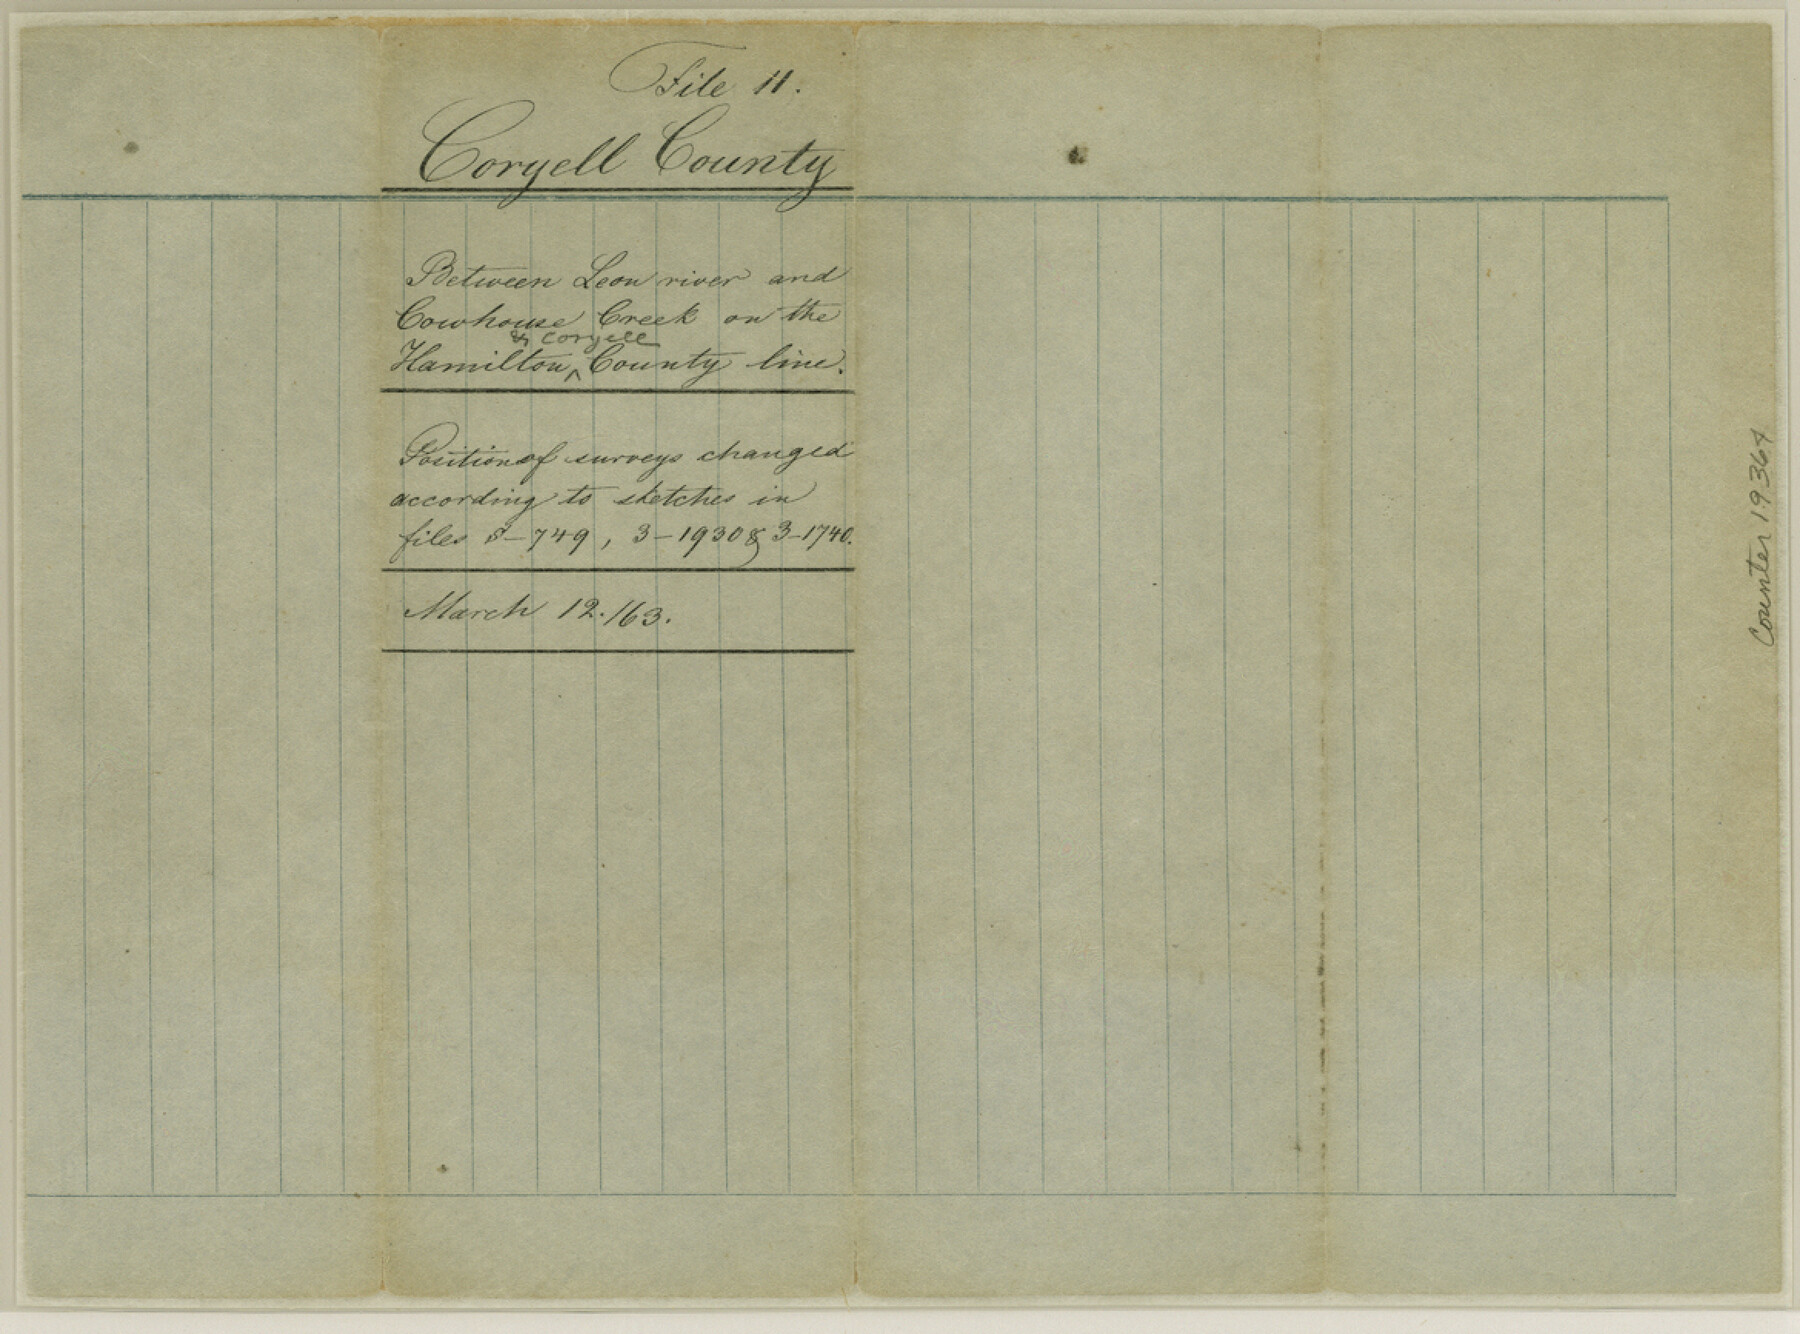 File 11.
Coryell County
Between Leon river and
Cowhouse Creek on the
& Coryell
Hamilton ^ County line.
Position of surveys changed
according to sketches in
files 5-749, 3-1930 & 3-1740.
March 12./63.
Counter 19364